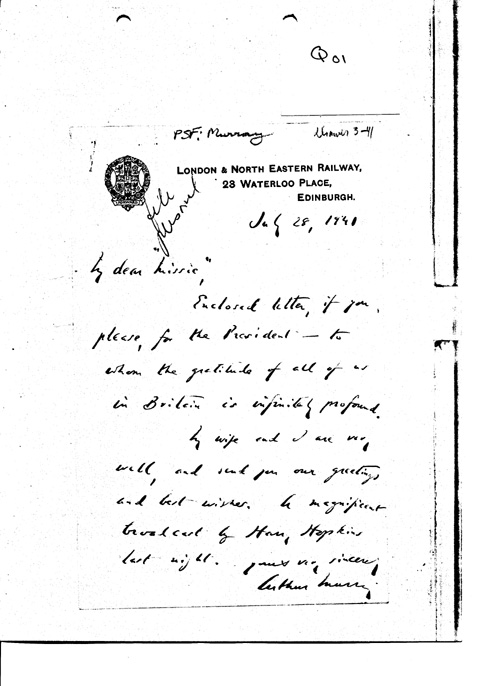 Q 01
PSF: Murray
3-41
LONDON & NORTH EASTERN RAILWAY,
23 WATERLOO PLACE,
EDINBURGH.
file
"personal"
July 28, 1941
My dear Missie,
Enclosed letter, if you
please, for the President — to
whom the gratitude of all of us
in Britain is infinitely profound.
My wife and I are very
well, and send you our greetings
and best wishes. A magnificent
broadcast by Harry Hopkins
last night. Yours very sincerely
Arthur Murray